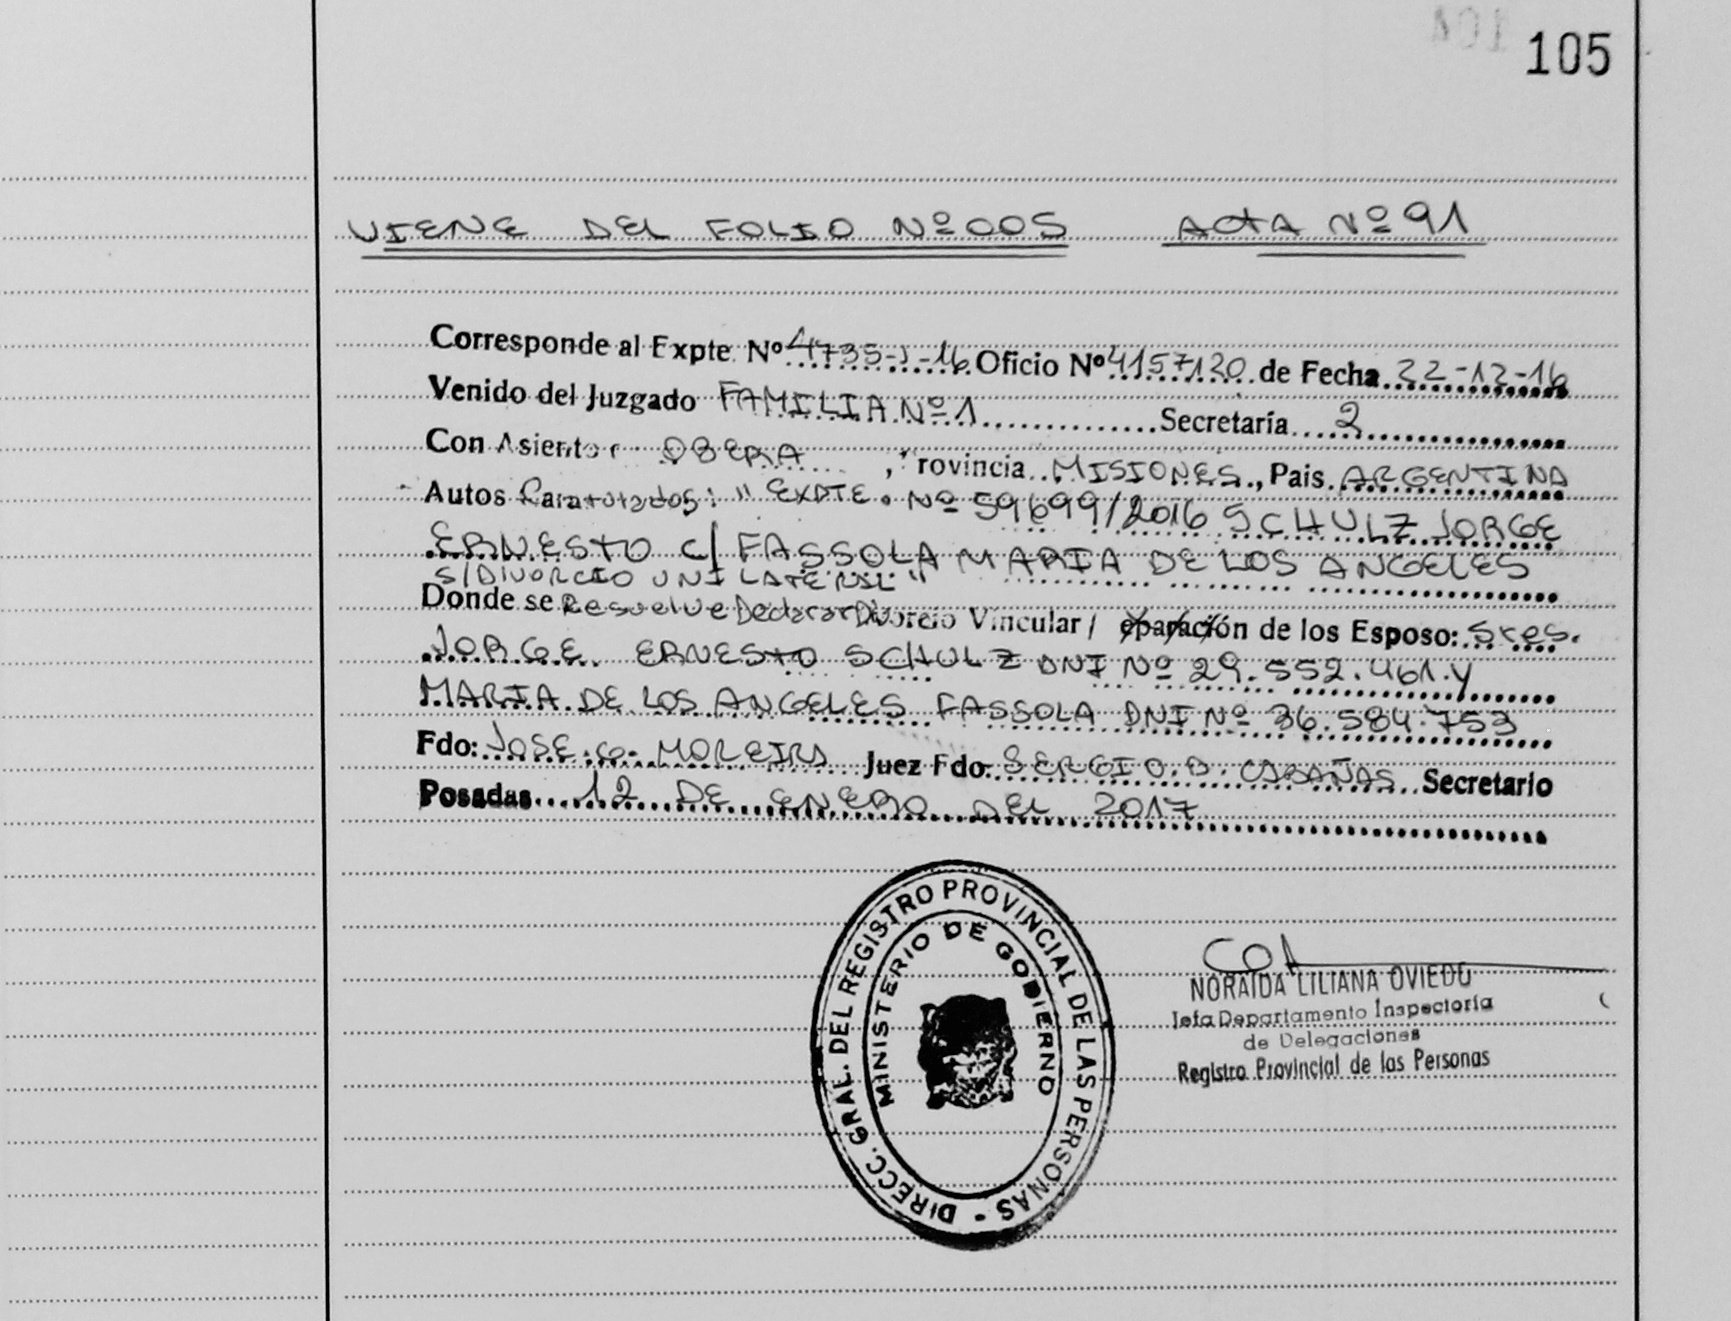 105
VIENE DEL FOLIO Nº 005 ACTA Nº 91
Corresponde al Expte. Nº 4735-J-16 Oficio Nº 4157120 de Fecha 22-12-16
Venido del Juzgado FAMILIA Nº 1 Secretaría 2
Con Asiento OBERA, Provincia MISIONES, Pais ARGENTINA
Autos Caratulados: "EXPTE. Nº 59699/2016 SCHULZ JORGE
ERNESTO C/ FASSOLA MARIA DE LOS ANGELES
S/DIVORCIO UNILATERAL"
Donde se Resuelve Declarar Divorcio Vincular / eparación de los Esposo: Sres.
JORGE ERNESTO SCHULZ DNI Nº 29.552.461 Y
MARIA DE LOS ANGELES FASSOLA DNI Nº 36.584.753
Fdo: JOSE G. MOREIRA Juez Fdo. SERGIO.B. CABAÑAS Secretario
Posadas 12 DE ENERO DEL 2017
DIRECC. GRAL. DEL REGISTRO PROVINCIAL DE LAS PERSONAS -
MINISTERIO DE GOBIERNO
NORAIDA LILIANA OVIEDO
Jefa Departamento Inspectoria
de Delegaciones
Registro Provincial de las Personas